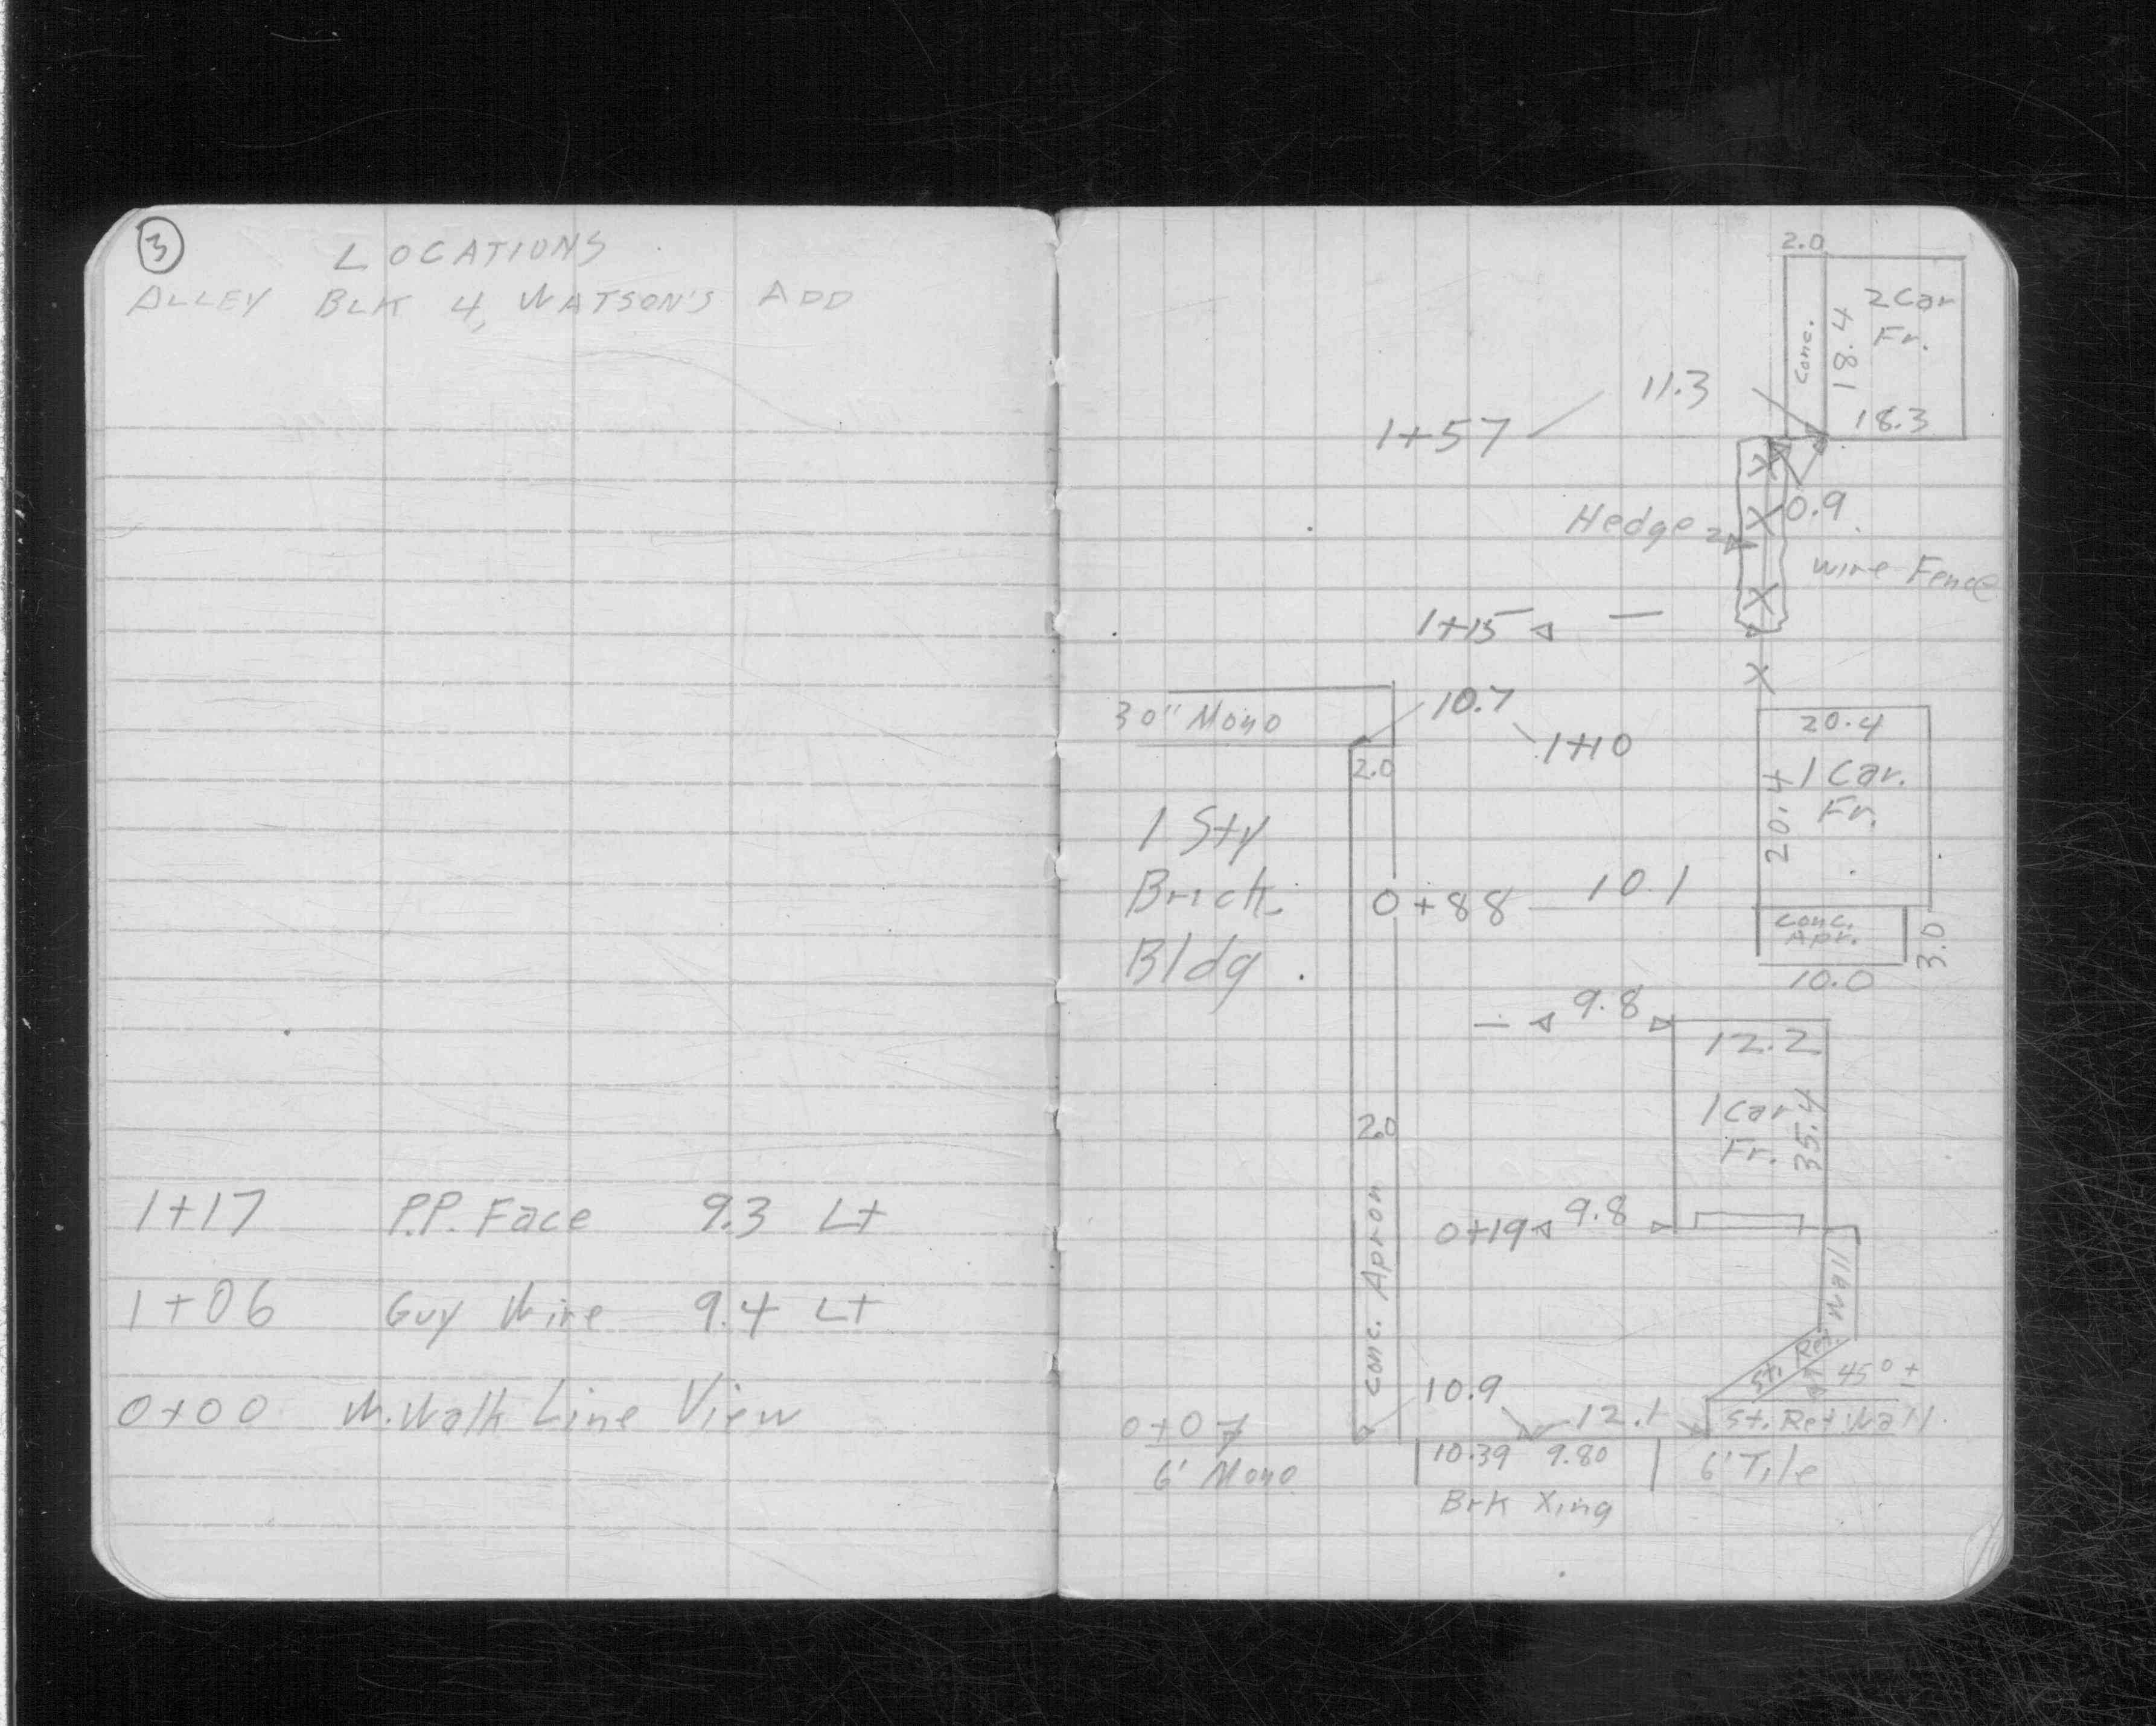 3
LOCATIONS
ALLEY BLK 4, WATSON'S ADD
1+17 P.P. Face 9.3 Lt
1+06 Guy Wire 9.4 Lt
0+00 W. Walk Line View
2.0
2 Car
Fr.
Conc.
18.4
18.3
11.3
1+57
0.9
Hedge
Wire Fence
1+15
10.7
30" Mono
1+10
2.0
20.4
1 Car.
Fr.
20.4
1 Sty
Brick
Bldg.
0+88 10.1
Conc.
Apr.
3.0
10.0
9.8
12.2
1 Car
Fr.
35.4
2.0
Conc. Apron
0+19 9.8
St. Ret. Wall
45° ±
10.9
12.1
St. Ret Wall
0+07
6' Mono
10.39 9.80
6' Tile
Brk Xing